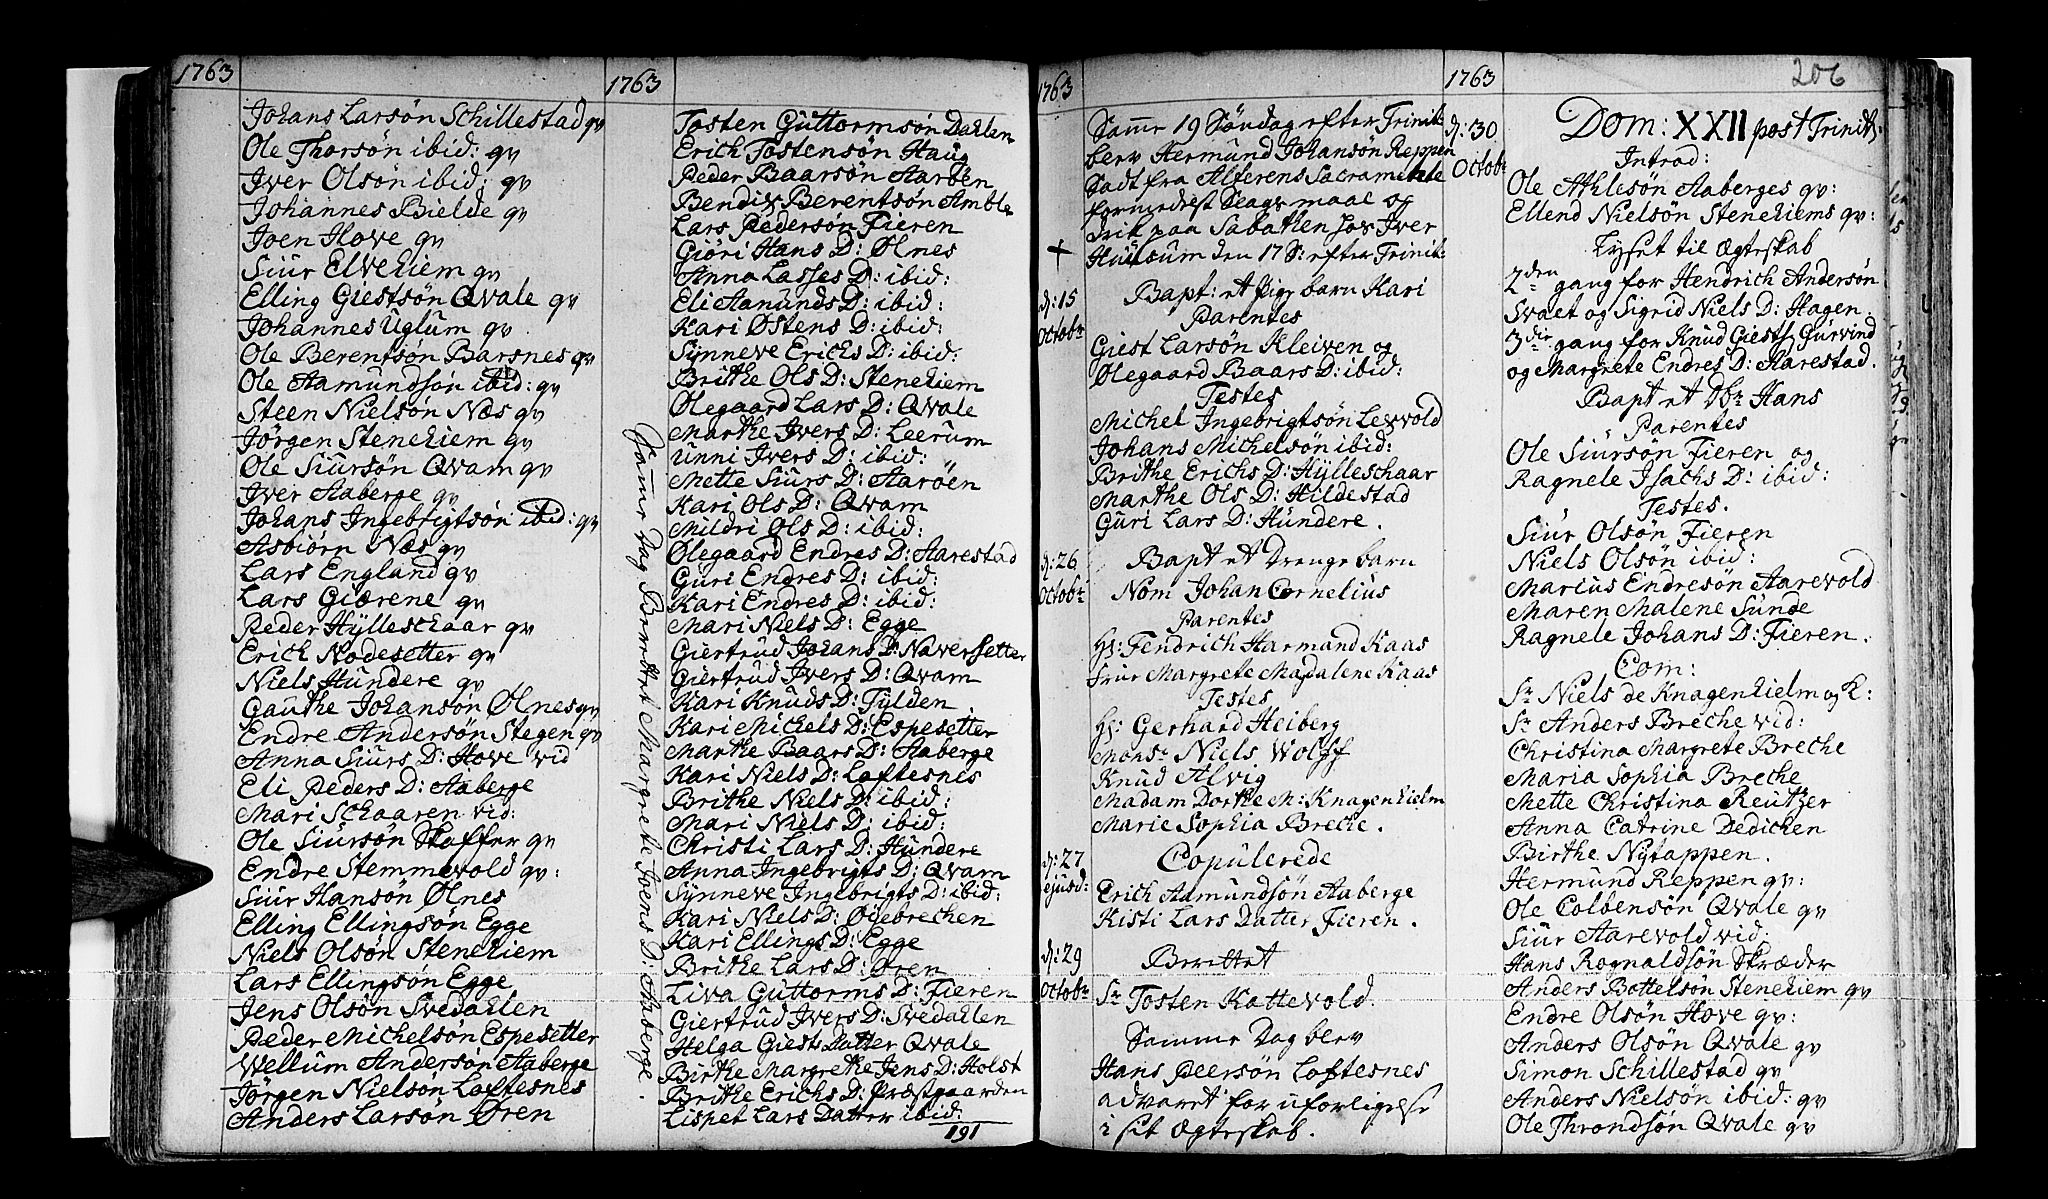 1763
Johans Larsön Schillestad qv
Ole Thorsön ibid: qv
Iver Olsön ibid: qv
Johannes Bielde qv
Joen Hove qv
Siur Elvehiem qv
Elling Giestsön Qvale qv
Johannes Uglum qv
Ole Berentsön Barsnes qv
Ole Aamundsön ibid: qv
Steen Nielsön Næs qv
Jörgen Stenehiem qv
Ole Siursön Qvam qv
Iver Aaberge qv
Johans Ingebrigtsön ibid: qv
Asbiörn Næs qv
Lars England qv
Lars Giærene qv
Peder Hylleschaar qv
Erich Nodesetter qv
Niels Hundere qv
Gauthe Johansön Ølnes qv
Endre Andersön Stegen qv
Anna Siurs D: Hove vid
Eli Peders D: Aaberge
Mari Schaaren vid:
Ole Siursön Skaffer qv
Endre Stemmevold qv:
Siur Hansön Ølnes
Elling Ellingsön Egge
Niels Olsön Stenehiem
Lars Ellingsön Egge
Jens Olsön Svedahlen
Peder Michelsön Espesetter
Wellum Andersön Aaberge
Jörgen Nielsön Loftesnes
Anders Larsön Øren
1763
Tosten Guttormsön Dahlen
Erich Tostensön Haug
Peder Baarsön Aaröen
Bendix Berentsön Amble
Lars Pedersön Fieren
Giöri Hans D: Ølnes
Anna Lasses D: ibid:
Eli Aamunds D: ibid:
Kari Østens D: ibid:
Synneve Erichs D: ibid:
Brithe Ols D: Stenehiem
Ølegaard Lars D: Qvale
Marthe Ivers D: Leerum
Unni Ivers D: ibid:
Mette Siurs D: Aaröen
Kari Ols D: Qvam
Mildri Ols D: ibid:
Ølegaard Endres D: Aarestad
Guri Endres D: ibid:
Kari Endres D: ibid:
Mari Niels D: Egge
Giertrud Johans D: Naversetter
Giertrud Ivers D: Qvam
Kari Knuds D: Fylden
Kari Michels D: Espesetter
Marthe Baars D: Aaberge
Kari Niels D: Loftesnes
Brithe Niels D: ibid:
Mari Niels D: ibid:
Christi Lars D: Hundere
Anna Ingebrigts D: Qvam
Synneve Ingebrigts D: ibid:
Kari Niels D: Ødebrechen
Kari Ellings D: Egge
Brithe Lars D: Øren
Liva Guttorms D: Fieren
Giertrud Ivers D: Svedahlen
Helga Giests Datter Qvale
Birthe Margrethe Jens D: Holst
Brithe Erichs D: Præstgaarden
Lispet Lars Datter ibid:
191
Samme Dag Berettet Margrete Joens D: Aaberge.
1763
Samme 19 Söndag efter Trinit:
blev Hermund Johansön Reppen
Sadt fra Alterens Sacramente
formedelst Slagsmaal og
drik paa Sabathen hos Iver
+ Huusum den 17 S: efter Trinit:
d: 15 Octobr
Bapt: et Pige barn Kari
Parentes
Giest Larsön Kleiven og
Ølegaard Baars D: ibid:
Testes
Michel Ingebrigtsön Levold
Johans Michelsön ibid:
Brithe Erichs D: Hylleschaar
Marthe Ols D: Hildestad
Guri Lars D: Hundere.
d: 26 Octobr
Bapt et Drenge barn
Nom Johan Cornelius
Parentes
Hr: Fendrich Harmand Kaas
Frue Margrete Magdalene Kaas
Testes
Hr: Gerhard Heiberg
Monsr Niels Wolff
Knud Alvig
Madam Dorthe M: Knagenhielm
Marie Sophia Breche.
d: 27 ejusd:
Copulerede
Erich Aamundsön Aaberge
Kisti Lars Datter Fieren.
d: 29 Octobr
Berettet
Sr Tosten Kattevold.
Samme Dag blev
Hans Peersön Loftesnes
advaret for uforligelse
i sit Ægteskab.
1763
206
d: 30 Octobr
Dom: XXII post Trinit:
Introd:
Ole Athlesön Aaberges qv:
Ellend Nielsön Stenehiems qv:
Lyset til Ægteskab
2den gang for Hendrich Andersön
Svaet og Sigrid Niels D: Hagen.
3die gang for Knud Giests Gurvind
og Margrete Endres D: Harestad.
Bapt et Dbr Hans
Parentes
Ole Siursön Fieren og
Ragnele Isachs D: ibid:
Testes.
Siur Olsön Fieren
Niels Olsön ibid:
Marius Endresön Aarevold
Maren Malene Sunde
Ragnele Johans D: Fieren.
Com:
Sr Niels de Knagenhielm og K:
Sr Anders Breche vid:
Christina Margrete Breche
Maria Sophia Breche
Mette Christina Reutzer
Anna Catrine Dedichen
Birthe Nytappen.
Hermund Reppen qv:
Ole Colbensön Qvale qv
Siur Aarevold vid:
Hans Rognaldsön Skræder
Anders Bottelsön Stenehiem qv
Endre Olsön Hove qv:
Anders Olsön Qvale qv
Simon Schillestad qv
Anders Nielsön ibid: qv
Ole Throndsön Qvale qv